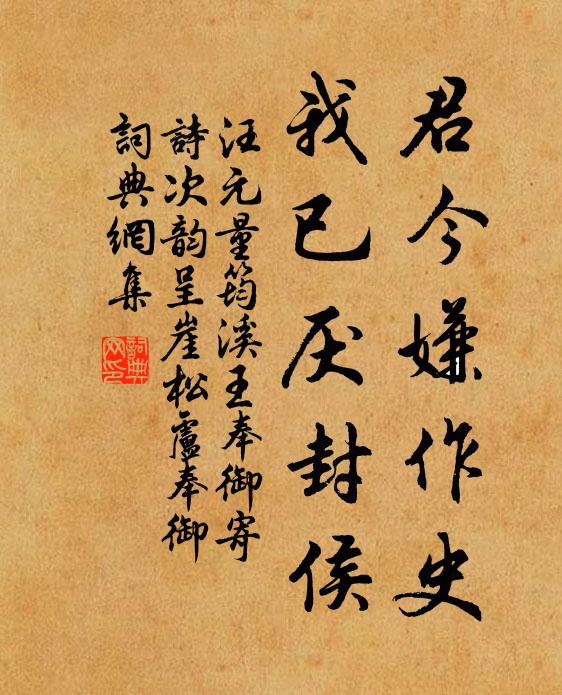 君今嫌作史
我已厌封侯
汪元量筠溪王奉御寄
詩次韵呈崖松盧奉御
詞典網集
詞典